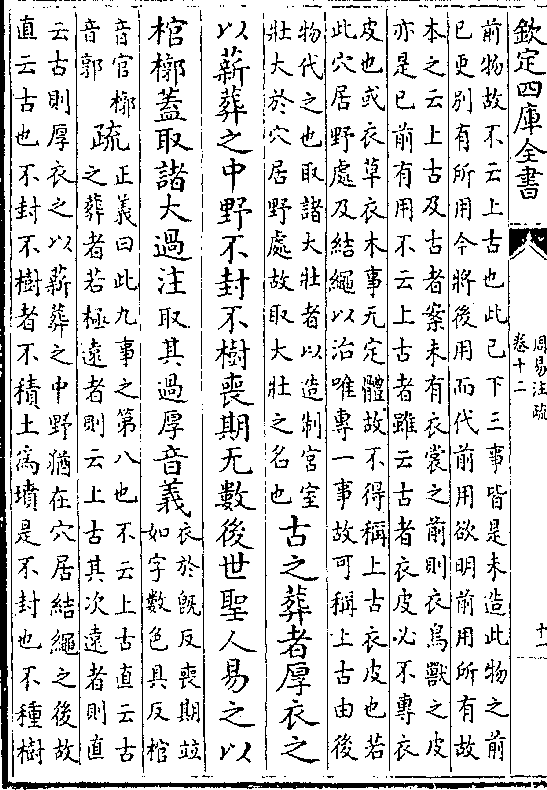 欽定四庫全書
周易注疏
卷十二
十一
前物故不云上古也此已下三事皆是未造此物之前
已更别有所用今將後用而代前用欲明前用所有故
本之云上古及古者案未有衣裳之前則衣鳥獸之皮
亦是已前有用不云上古者雖云古者衣皮必不專衣
皮也或衣草衣木事无定體故不得稱上古衣皮也若
此穴居野處及結繩以治唯專一事故可稱上古由後
物代之也取諸大壯者以造制宫室
壯大於穴居野處故取大壯之名也
古之葬者厚衣之
以薪葬之中野不封不樹喪期无數後世聖人易之以
棺槨蓋取諸大過注取其過厚音義
衣於旣反喪期竝
如字數色具反棺
音官槨
音郭
疏
正義曰此九事之第八也不云上古直云古
之葬者若極遠者則云上古其次遠者則直
云古則厚衣之以薪葬之中野猶在穴居結繩之後故
直云古也不封不樹者不積土為墳是不封也不種樹